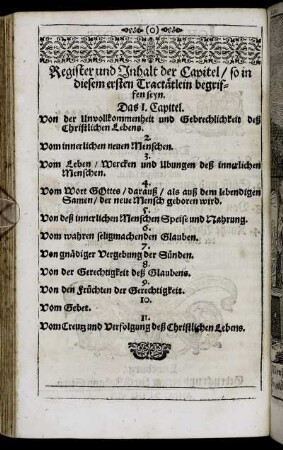 (o)
Register und Inhalt der Capitel / so in
diesem ersten Tractätlein begrif-
fen seyn.
Das 1. Capitel.
Von der Unvollkommenheit und Gebrechlichkeit deß
Christlichen Lebens.
2.
Vom innerlichen neuen Menschen.
3.
Vom Leben / Wercken und Ubungen deß innerlichen
Menschen.
4.
Vom Wort GOttes / darauß / als auß dem lebendigen
Samen / der neue Mensch geboren wird.
5.
Von deß innerlichen Menschen Speise und Nahrung.
6.
Vom wahren seligmachenden Glauben.
7.
Von gnädiger Vergebung der Sünden.
8.
Von der Gerechtigkeit deß Glaubens.
9.
Von den Früchten der Gerechtigkeit.
10.
Vom Gebet.
11.
Vom Creutz und Verfolgung deß Christlichen Lebens.